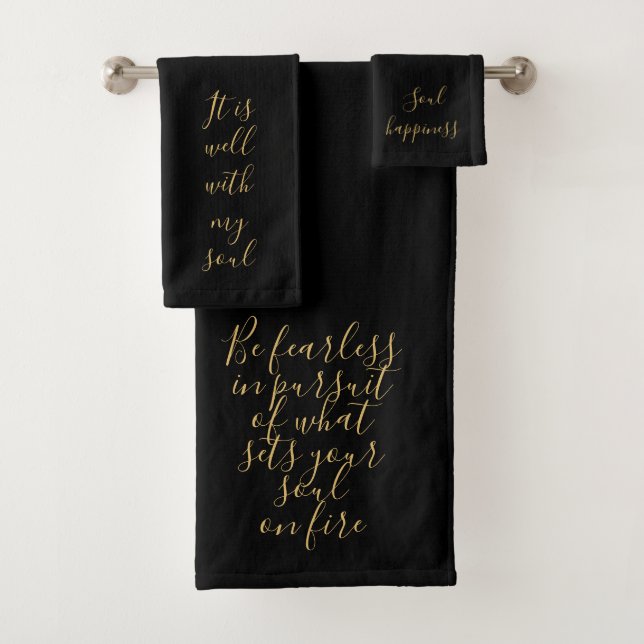 It is
well
with
my
soul
Soul
happiness
Be fearless
in pursuit
of what
sets your
soul
on fire